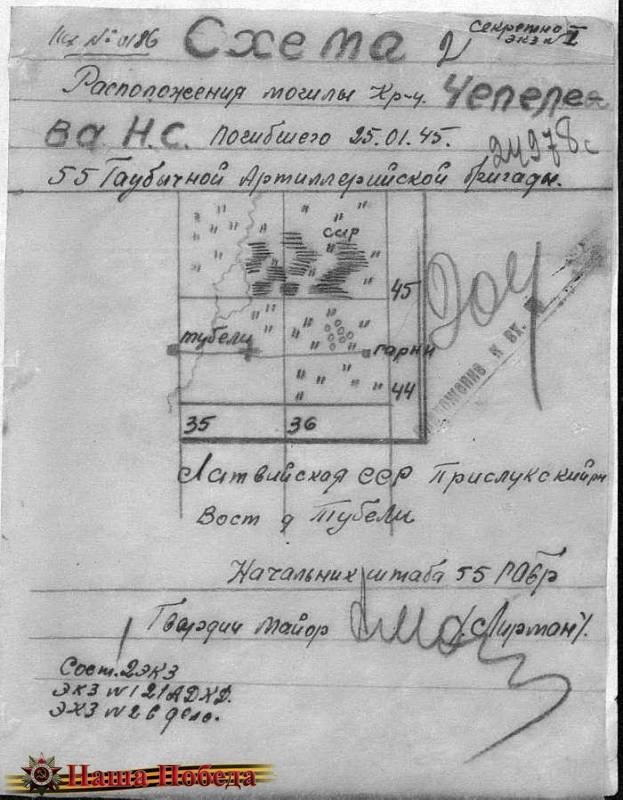 Исх № 0186 Схема 2 Секретно
экз № 1
Расположения могилы Кр-ц. Чепеле
ва Н.С. Погибшего 25.01.45.
24978с
55 Гаубычной Артиллерийской бригады.
сар
45
тубели
гарни
44
35 36
Латвийская ССР Прислукский рн
Вост д Тубели
Начальник штаба 55 ГАбр
Гвардии майор (Лирман).
Сост. 2 экз
экз № 1 21 АДХД.
экз № 2 в дело.
Наша Победа